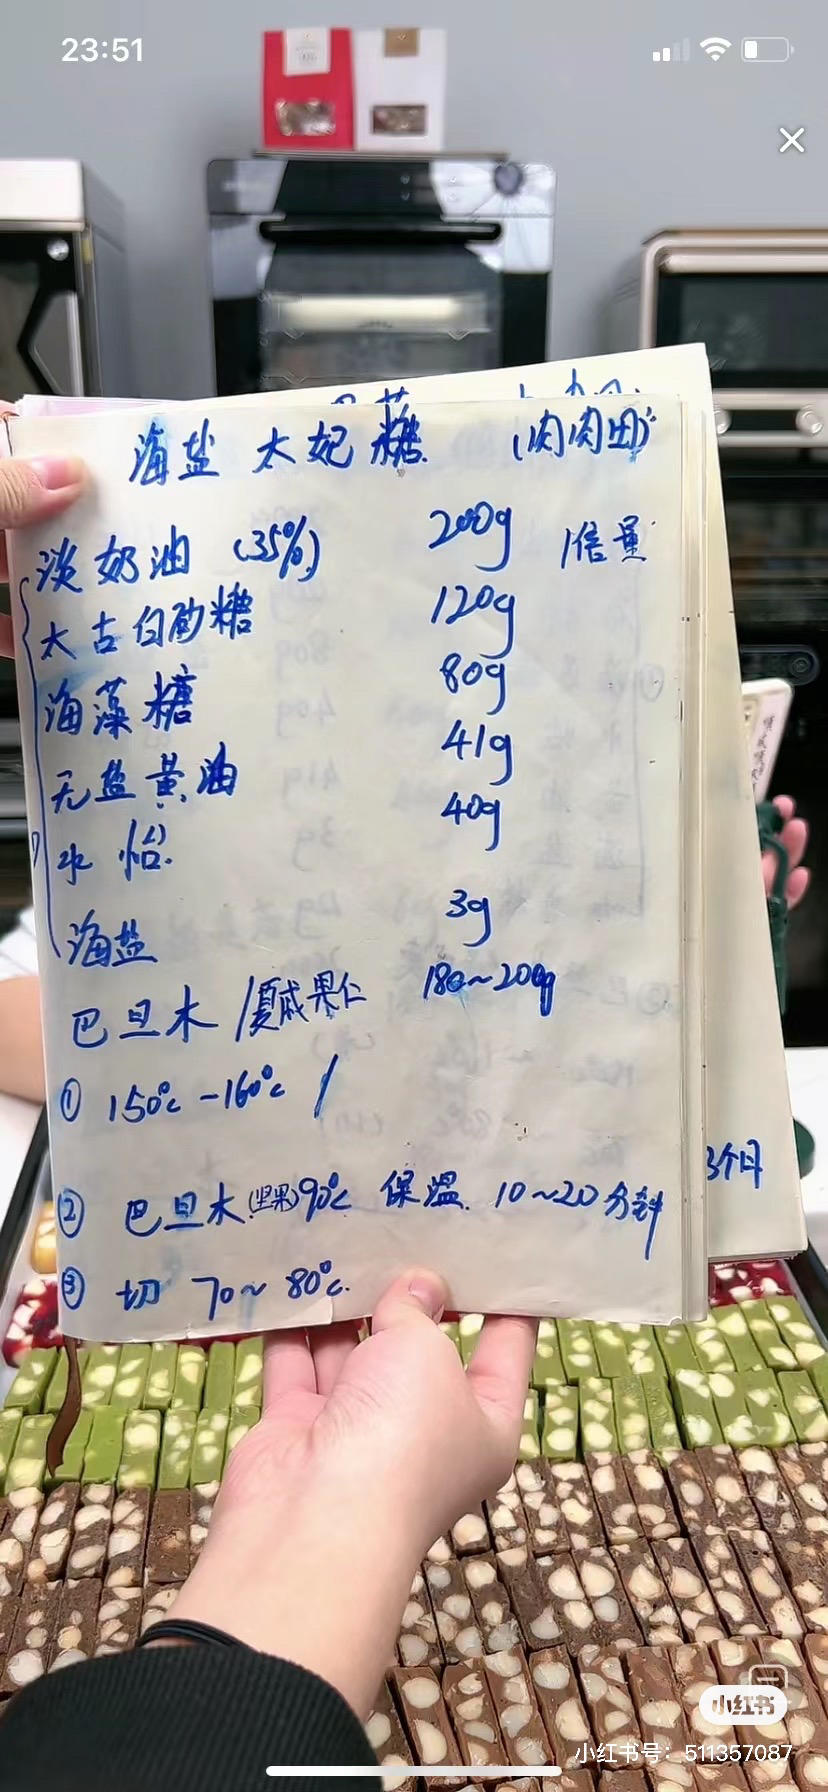 23:51
海盐 太妃糖 (肉肉团)
淡奶油 (35%) 200g 1倍量
太古白砂糖 120g
海藻糖 80g
无盐黄油 41g
水怡 40g
海盐 3g
巴旦木/夏威果仁 180~200g
① 150℃-160℃
3个月
② 巴旦木(坚果)90℃ 保温 10~20分钟
③ 切 70~80℃.
小红书
小红书号：511357087